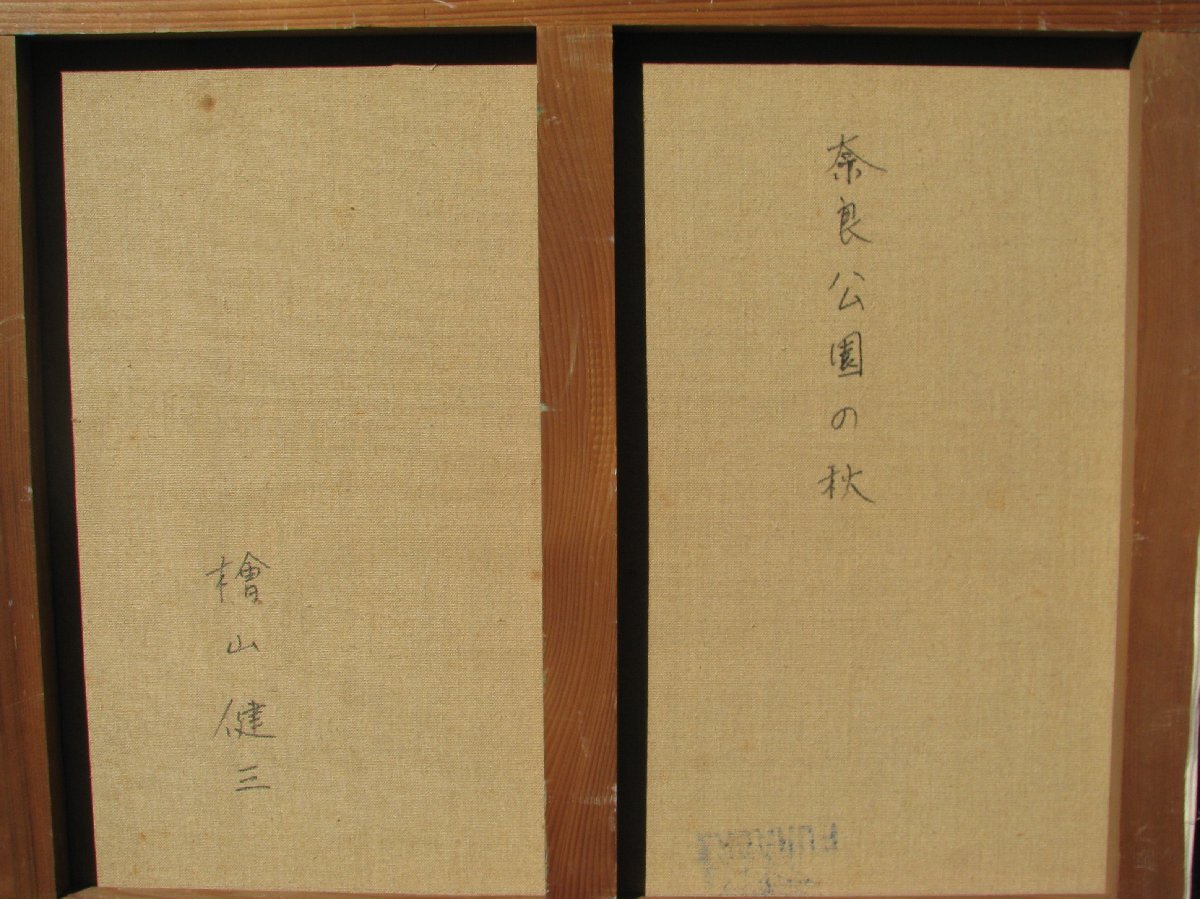 奈良公園の秋
檜山健三